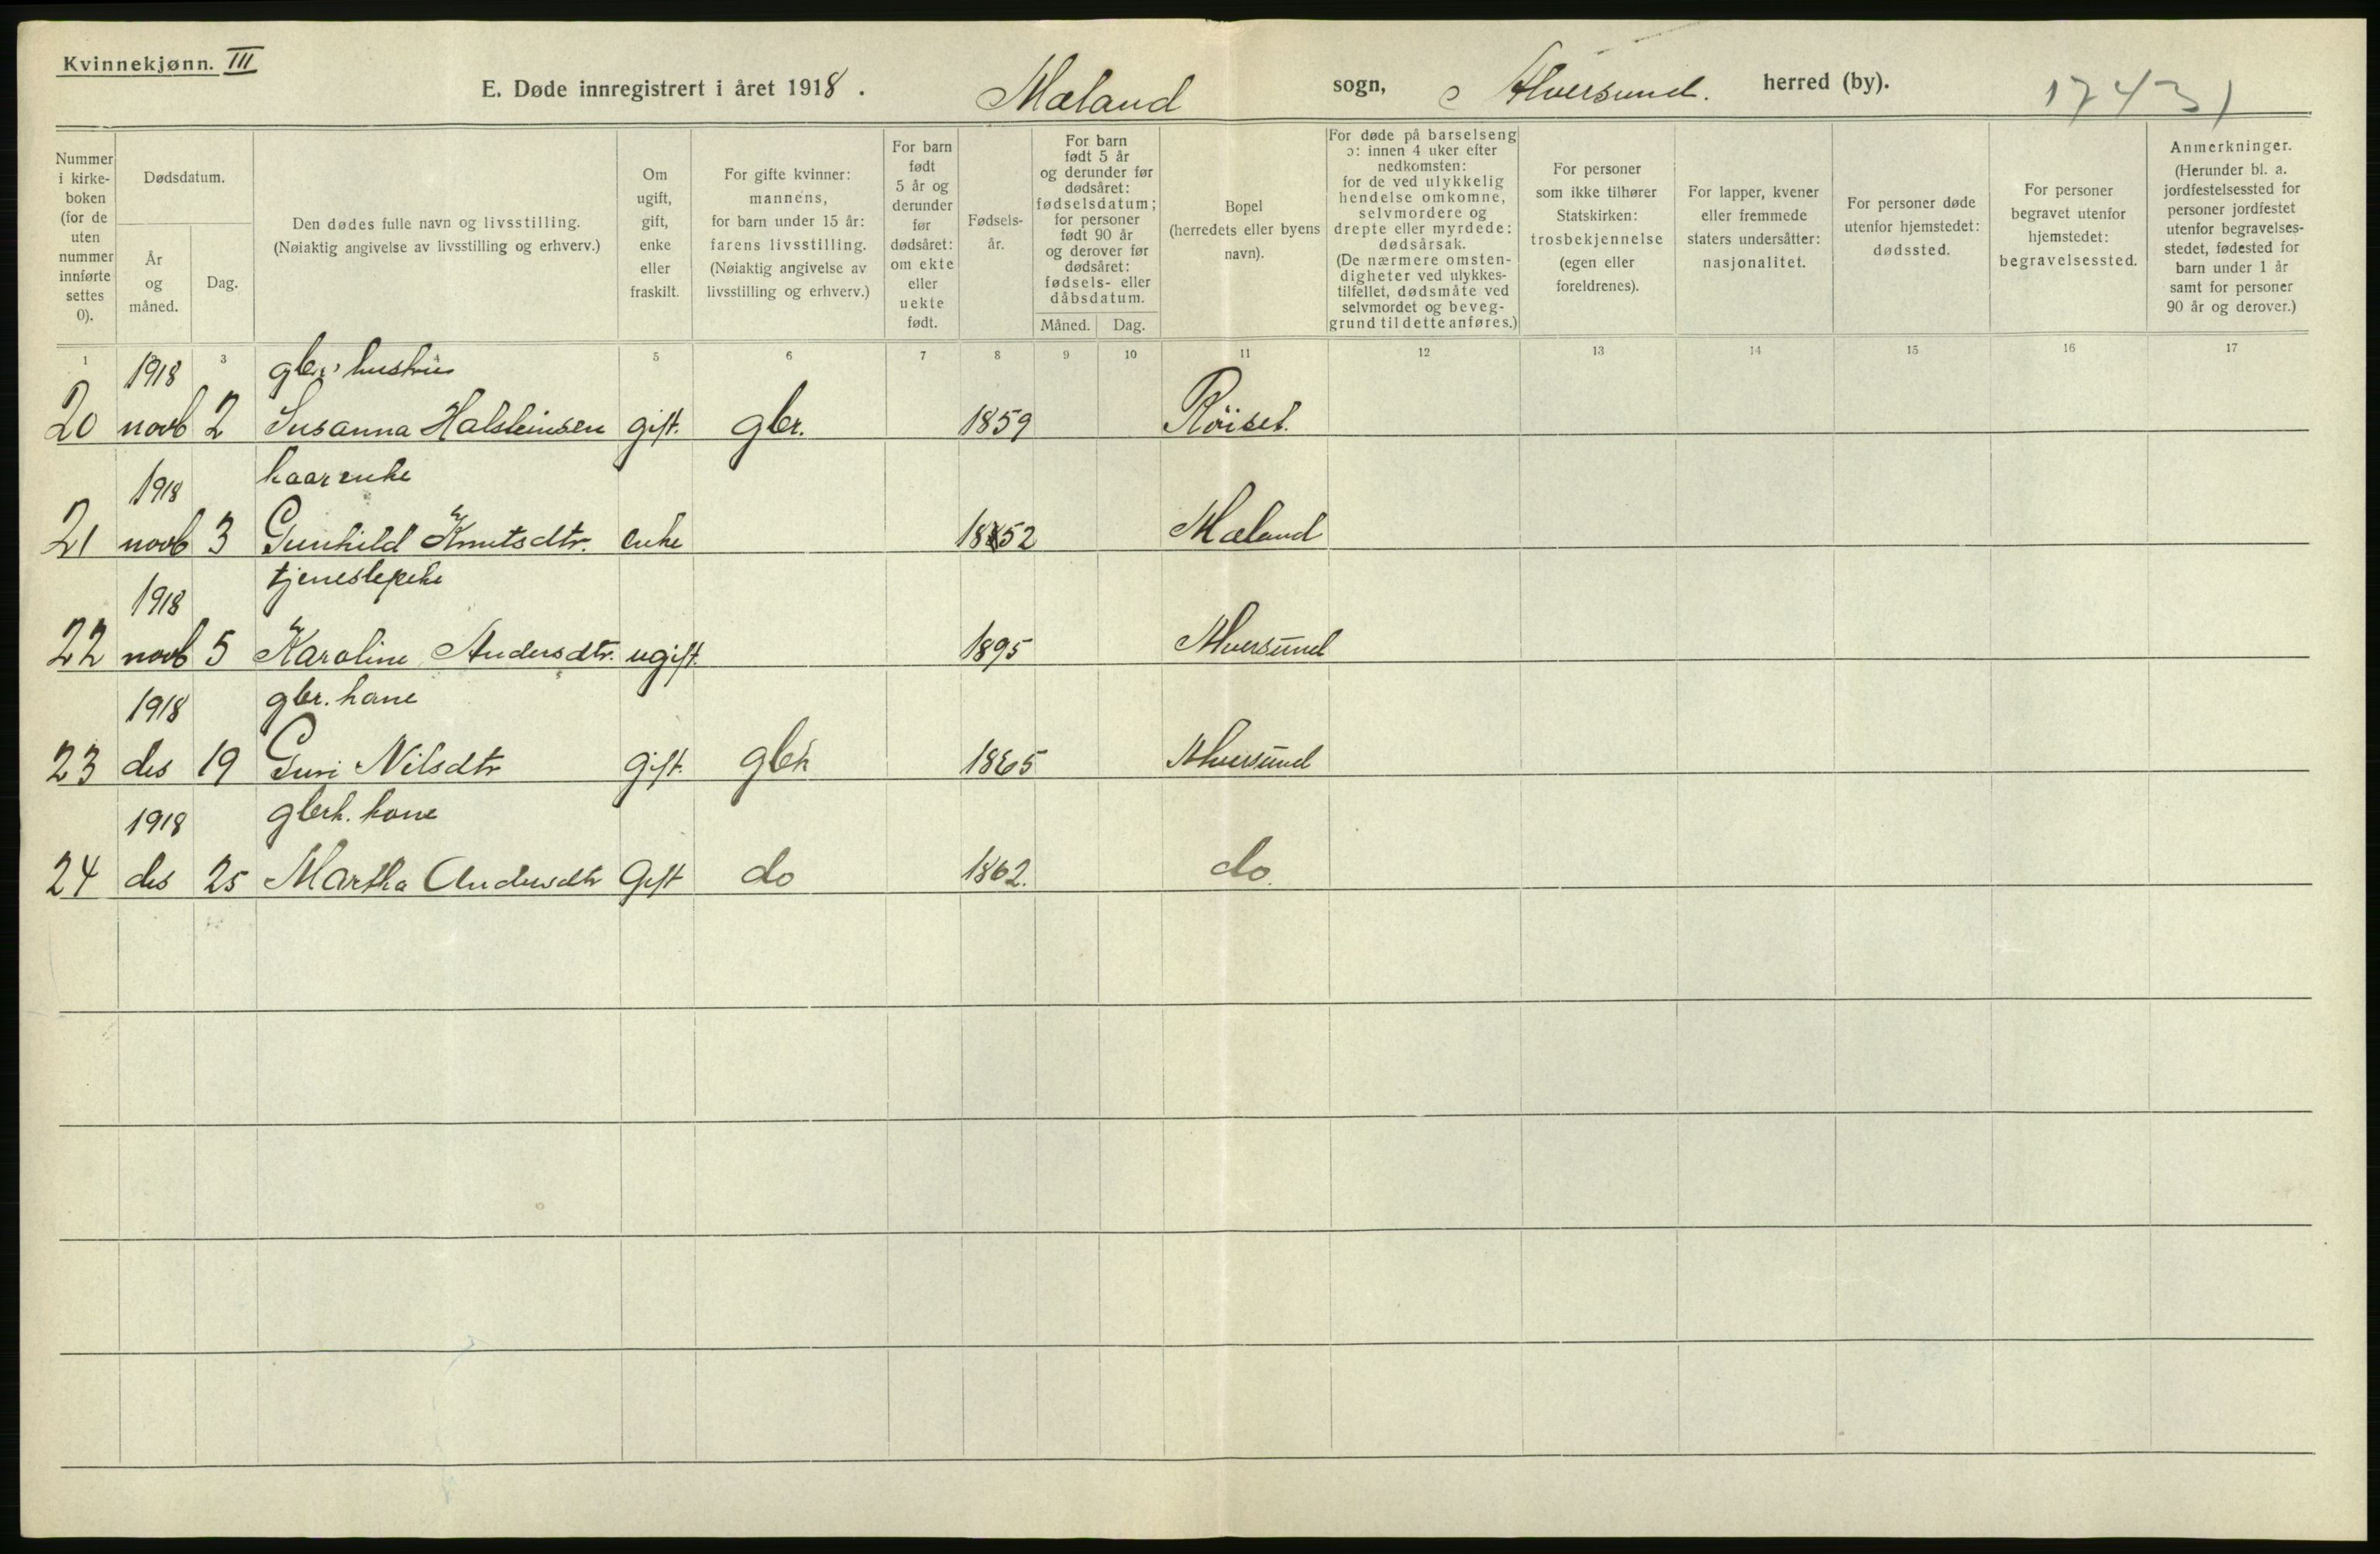 Kvinnekjønn. III
E. Døde innregistrert i året 1918. Mæland sogn, Alversund. herred (by). 17431
Nummer i kirkeboken (for de uten nummer innførte settes 0).
Dødsdatum.
År og måned.
Dag.
Den dødes fulle navn og livsstilling.
(Nøiaktig angivelse av livsstilling og erhverv.)
Om ugift, gift, enke eller fraskilt.
For gifte kvinner: mannens, for barn under 15 år: farens livsstilling. (Nøiaktig angivelse av livsstilling og erhverv.)
For barn født 5 år og derunder før dødsåret: om ekte eller uekte født.
Fødselsår.
For barn født 5 år og derunder før dødsåret: fødselsdatum; for personer født 90 år og derover før dødsåret: fødsels- eller dåbsdatum.
Måned. Dag.
Bopel (herredets eller byens navn).
For døde på barselseng ɔ: innen 4 uker efter nedkomsten: for de ved ulykkelig hendelse omkomne, selvmordere og drepte eller myrdede: dødsårsak. (De nærmere omstendigheter ved ulykkestilfellet, dødsmåte ved selvmordet og beveggrund til dette anføres.)
For personer som ikke tilhører Statskirken: trosbekjennelse (egen eller foreldrenes).
For lapper, kvener eller fremmede staters undersåtter: nasjonalitet.
For personer døde utenfor hjemstedet: dødssted.
For personer begravet utenfor hjemstedet: begravelsessted.
Anmerkninger. (Herunder bl. a. jordfestelsessted for personer jordfestet utenfor begravelsesstedet, fødested for barn under 1 år samt for personer 90 år og derover.)
1 3 4 5 6 7 8 9 10 11 12 13 14 15 16 17
1918 gbr. hustru
20 novb 2 Susanna Halsteinsen gift. gbr. 1859 Röiset.
1918 kaarenke
21 novb 3 Gunhild Knutsdtr. enke 1852 Mæland
1918 tjenestepike
22 novb 5 Karoline Andersdtr. ugift. 1895 Alversund
1918 gbr. kone
23 des 19 Guri Nilsdtr gift. gbr 1865 Alversund
1918 gbrk. kone
24 des 25 Martha Andersdtr Gift do 1862. do.